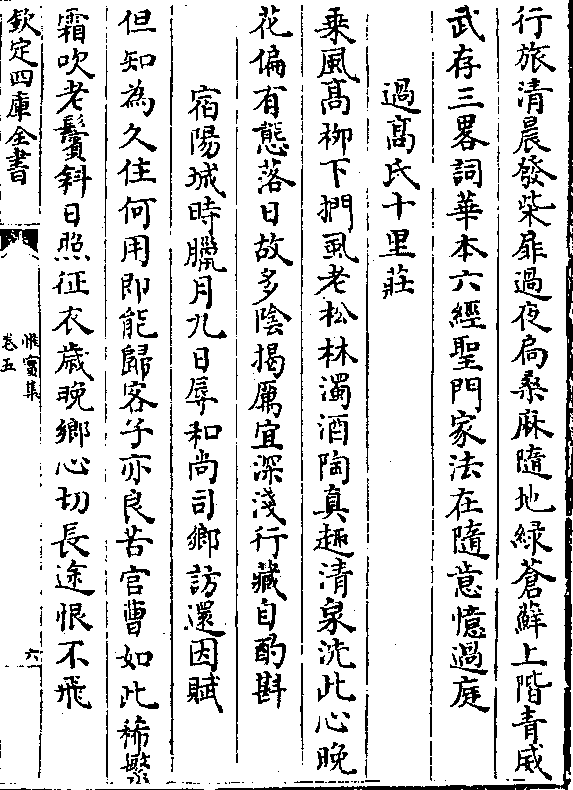 行旅清晨發柴扉過夜扃桑麻隨地綠蒼蘚上階青威
武存三畧詞華本六經聖門家法在隨意憶過庭
過髙氏十里莊
乘風髙柳下捫虱老松林濁酒陶真趣清泉洗此心晚
花偏有態落日故多陰揭厲宜深淺行藏自酌斟
宿陽城時臘月九日辱和尚司鄉訪還因賦
但知為久住何用即能歸客子亦良苦官曹如此稀繁
霜吹老鬢斜日照征衣歲晚鄉心切長途恨不飛
欽定四庫全書
惟實集
卷五
六